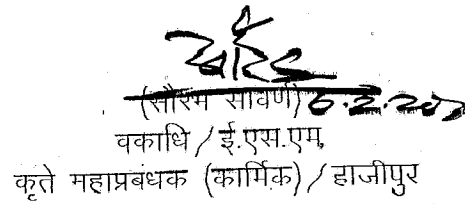 (सौरभ सावर्ण)
वकाधि / ई.एस.एम.
कृते महाप्रबंधक (कार्मिक) / हाजीपुर